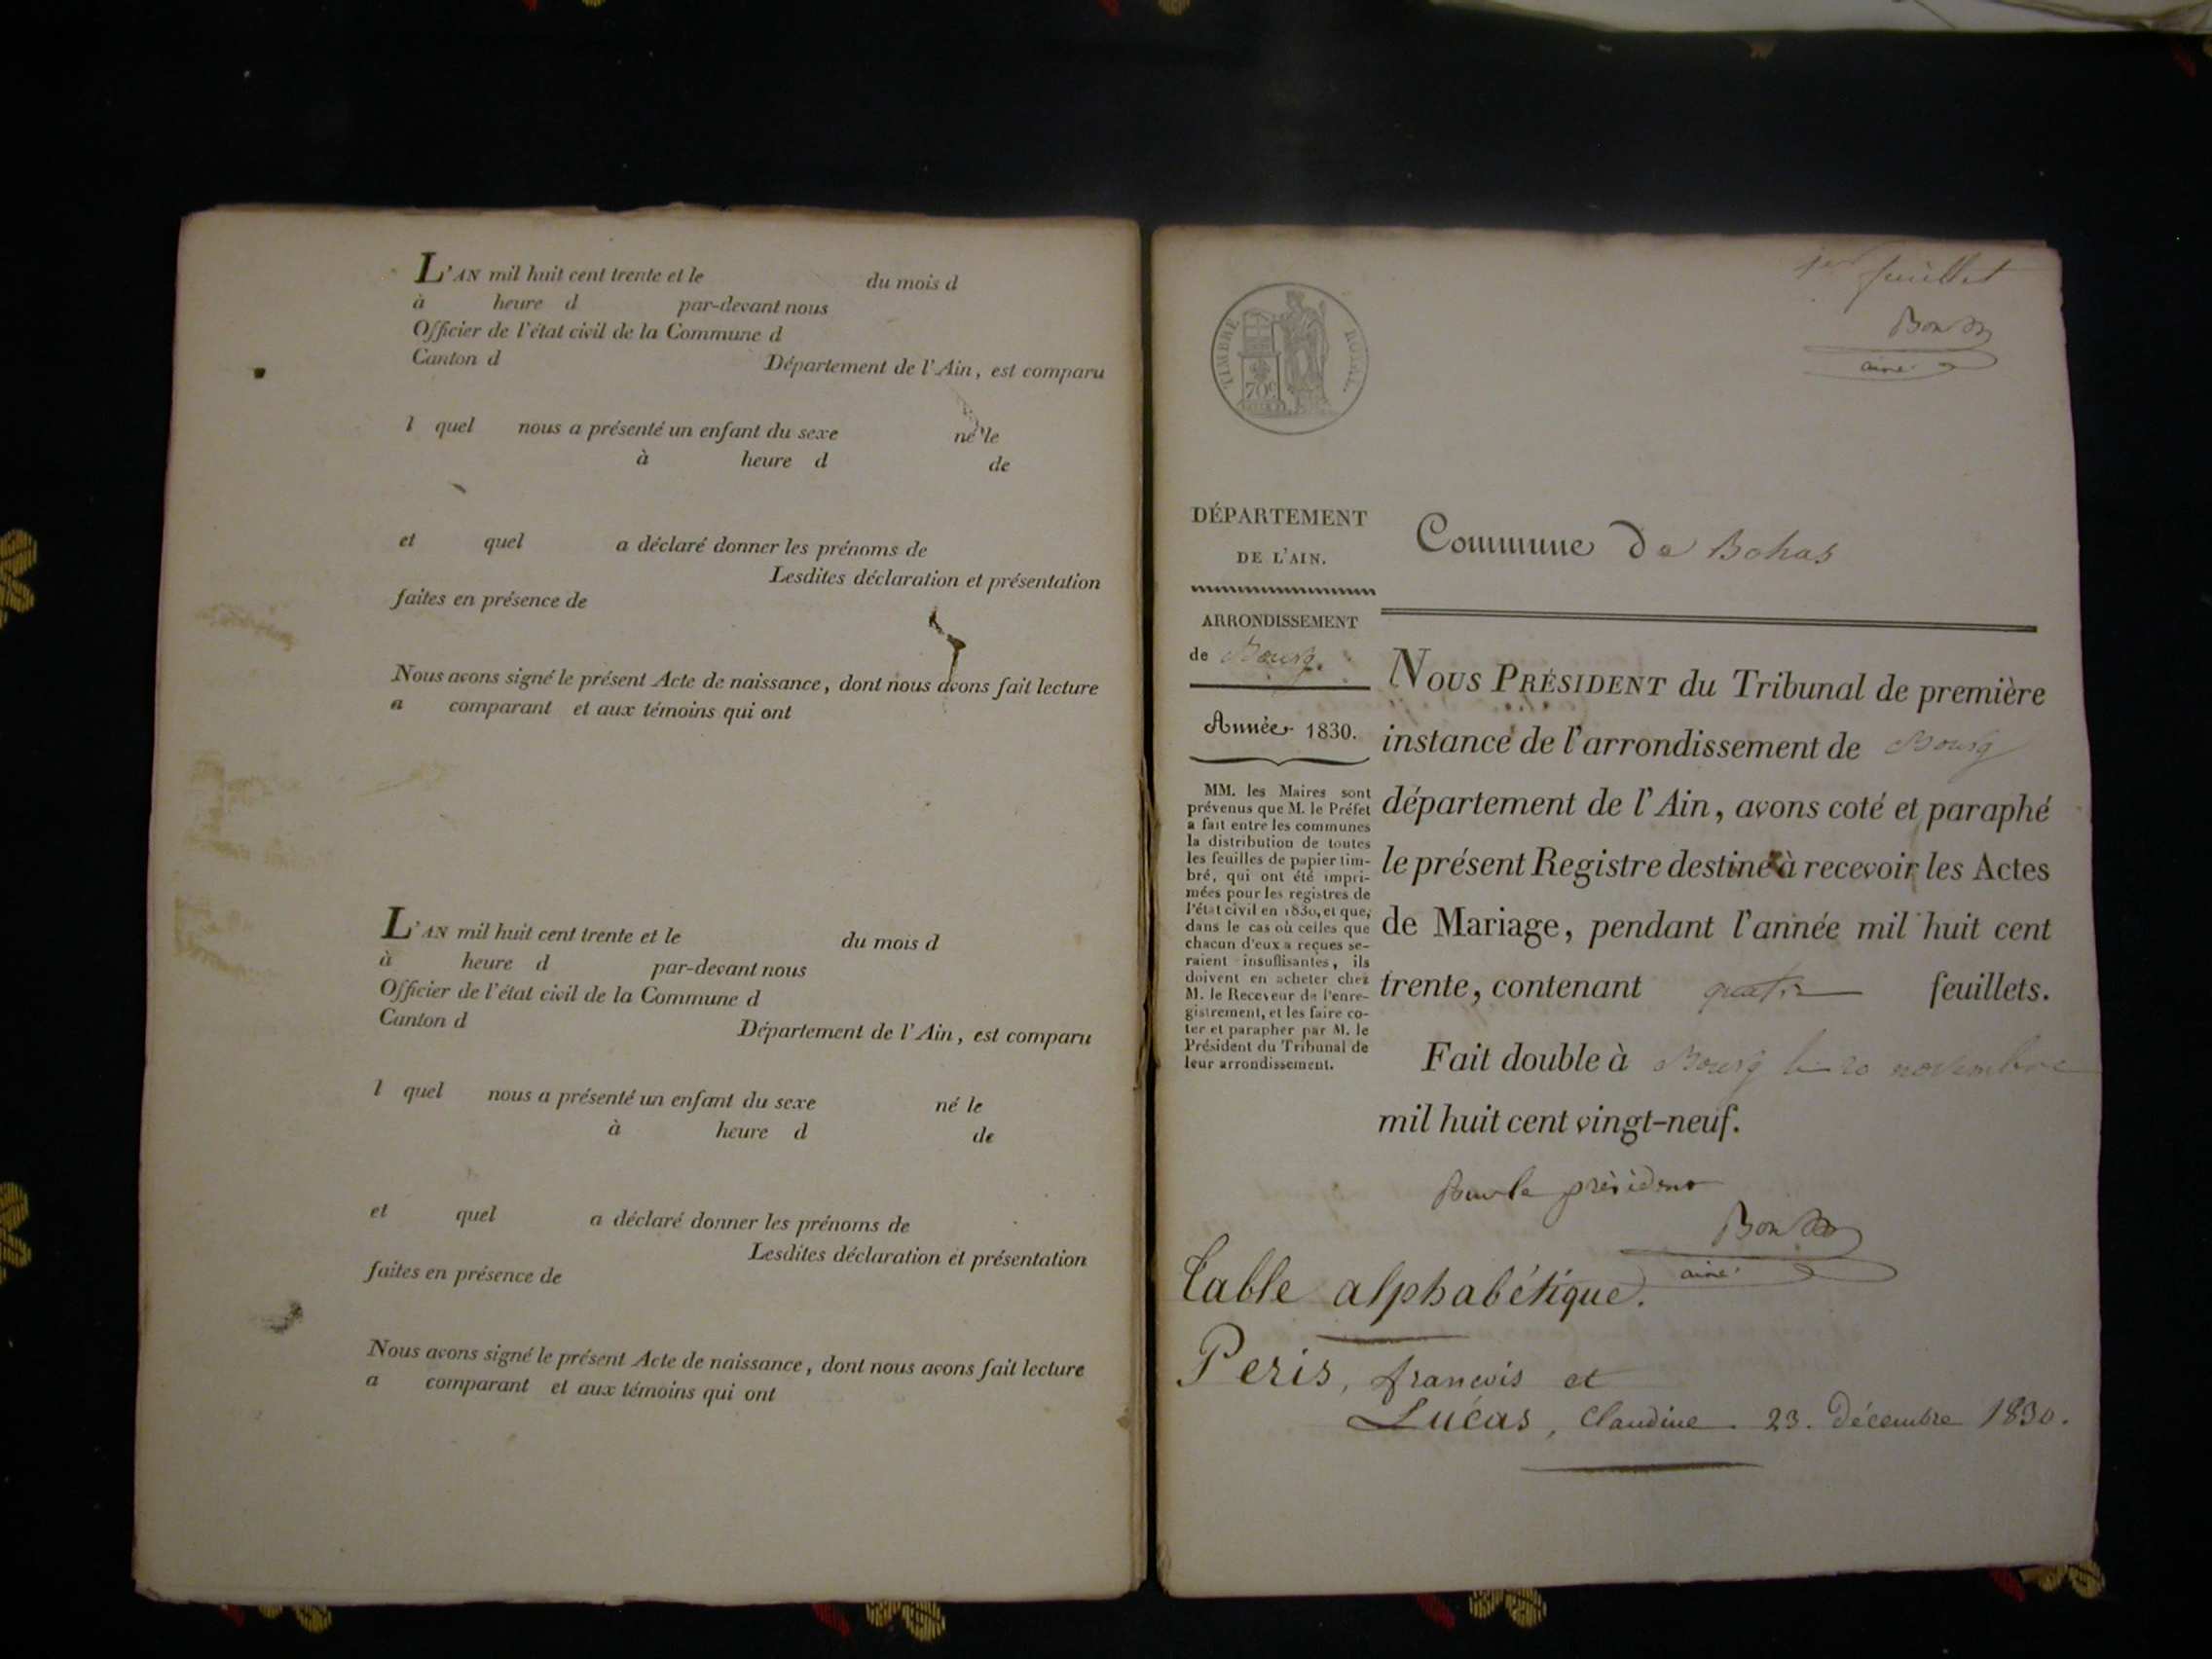 L'AN mil huit cent trente et le du mois d
à heure d par-devant nous
Officier de l'état civil de la Commune d
Canton d Département de l'Ain, est comparu
l quel nous a présenté un enfant du sexe né le
à heure d de
et quel a déclaré donner les prénoms de
Lesdites déclaration et présentation
faites en présence de
Nous avons signé le présent Acte de naissance, dont nous avons fait lecture
a comparant et aux témoins qui ont
L'AN mil huit cent trente et le du mois d
à heure d par-devant nous
Officier de l'état civil de la Commune d
Canton d Département de l'Ain, est comparu
l quel nous a présenté un enfant du sexe né le
à heure d de
et quel a déclaré donner les prénoms de
Lesdites déclaration et présentation
faites en présence de
Nous avons signé le présent Acte de naissance, dont nous avons fait lecture
a comparant et aux témoins qui ont
1er feuillet
ainé
TIMBRE ROYAL
70c
DÉPARTEMENT
DE L'AIN.
ARRONDISSEMENT
de Bourg.
Année 1830.
MM. les Maires sont
prévenus que M. le Préfet
a fait entre les communes
la distribution de toutes
les feuilles de papier tim-
bré, qui ont été impri-
mées pour les registres de
l'état civil en 1830, et que,
dans le cas où celles que
chacun d'eux a reçues se-
raient insuffisantes, ils
doivent en acheter chez
M. le Receveur de l'enre-
gistrement, et les faire co-
ter et parapher par M. le
Président du Tribunal de
leur arrondissement.
Commune de Bohas
NOUS PRÉSIDENT du Tribunal de première
instance de l'arrondissement de Bourg
département de l'Ain, avons coté et paraphé
le présent Registre destiné à recevoir les Actes
de Mariage, pendant l'année mil huit cent
trente, contenant quatre feuillets.
Fait double à Bourg le 20 novembre
mil huit cent vingt-neuf.
Pour le président
ainé
Table alphabétique.
Peris, francois et
Lucas, Claudine. 23. Décembre 1830.